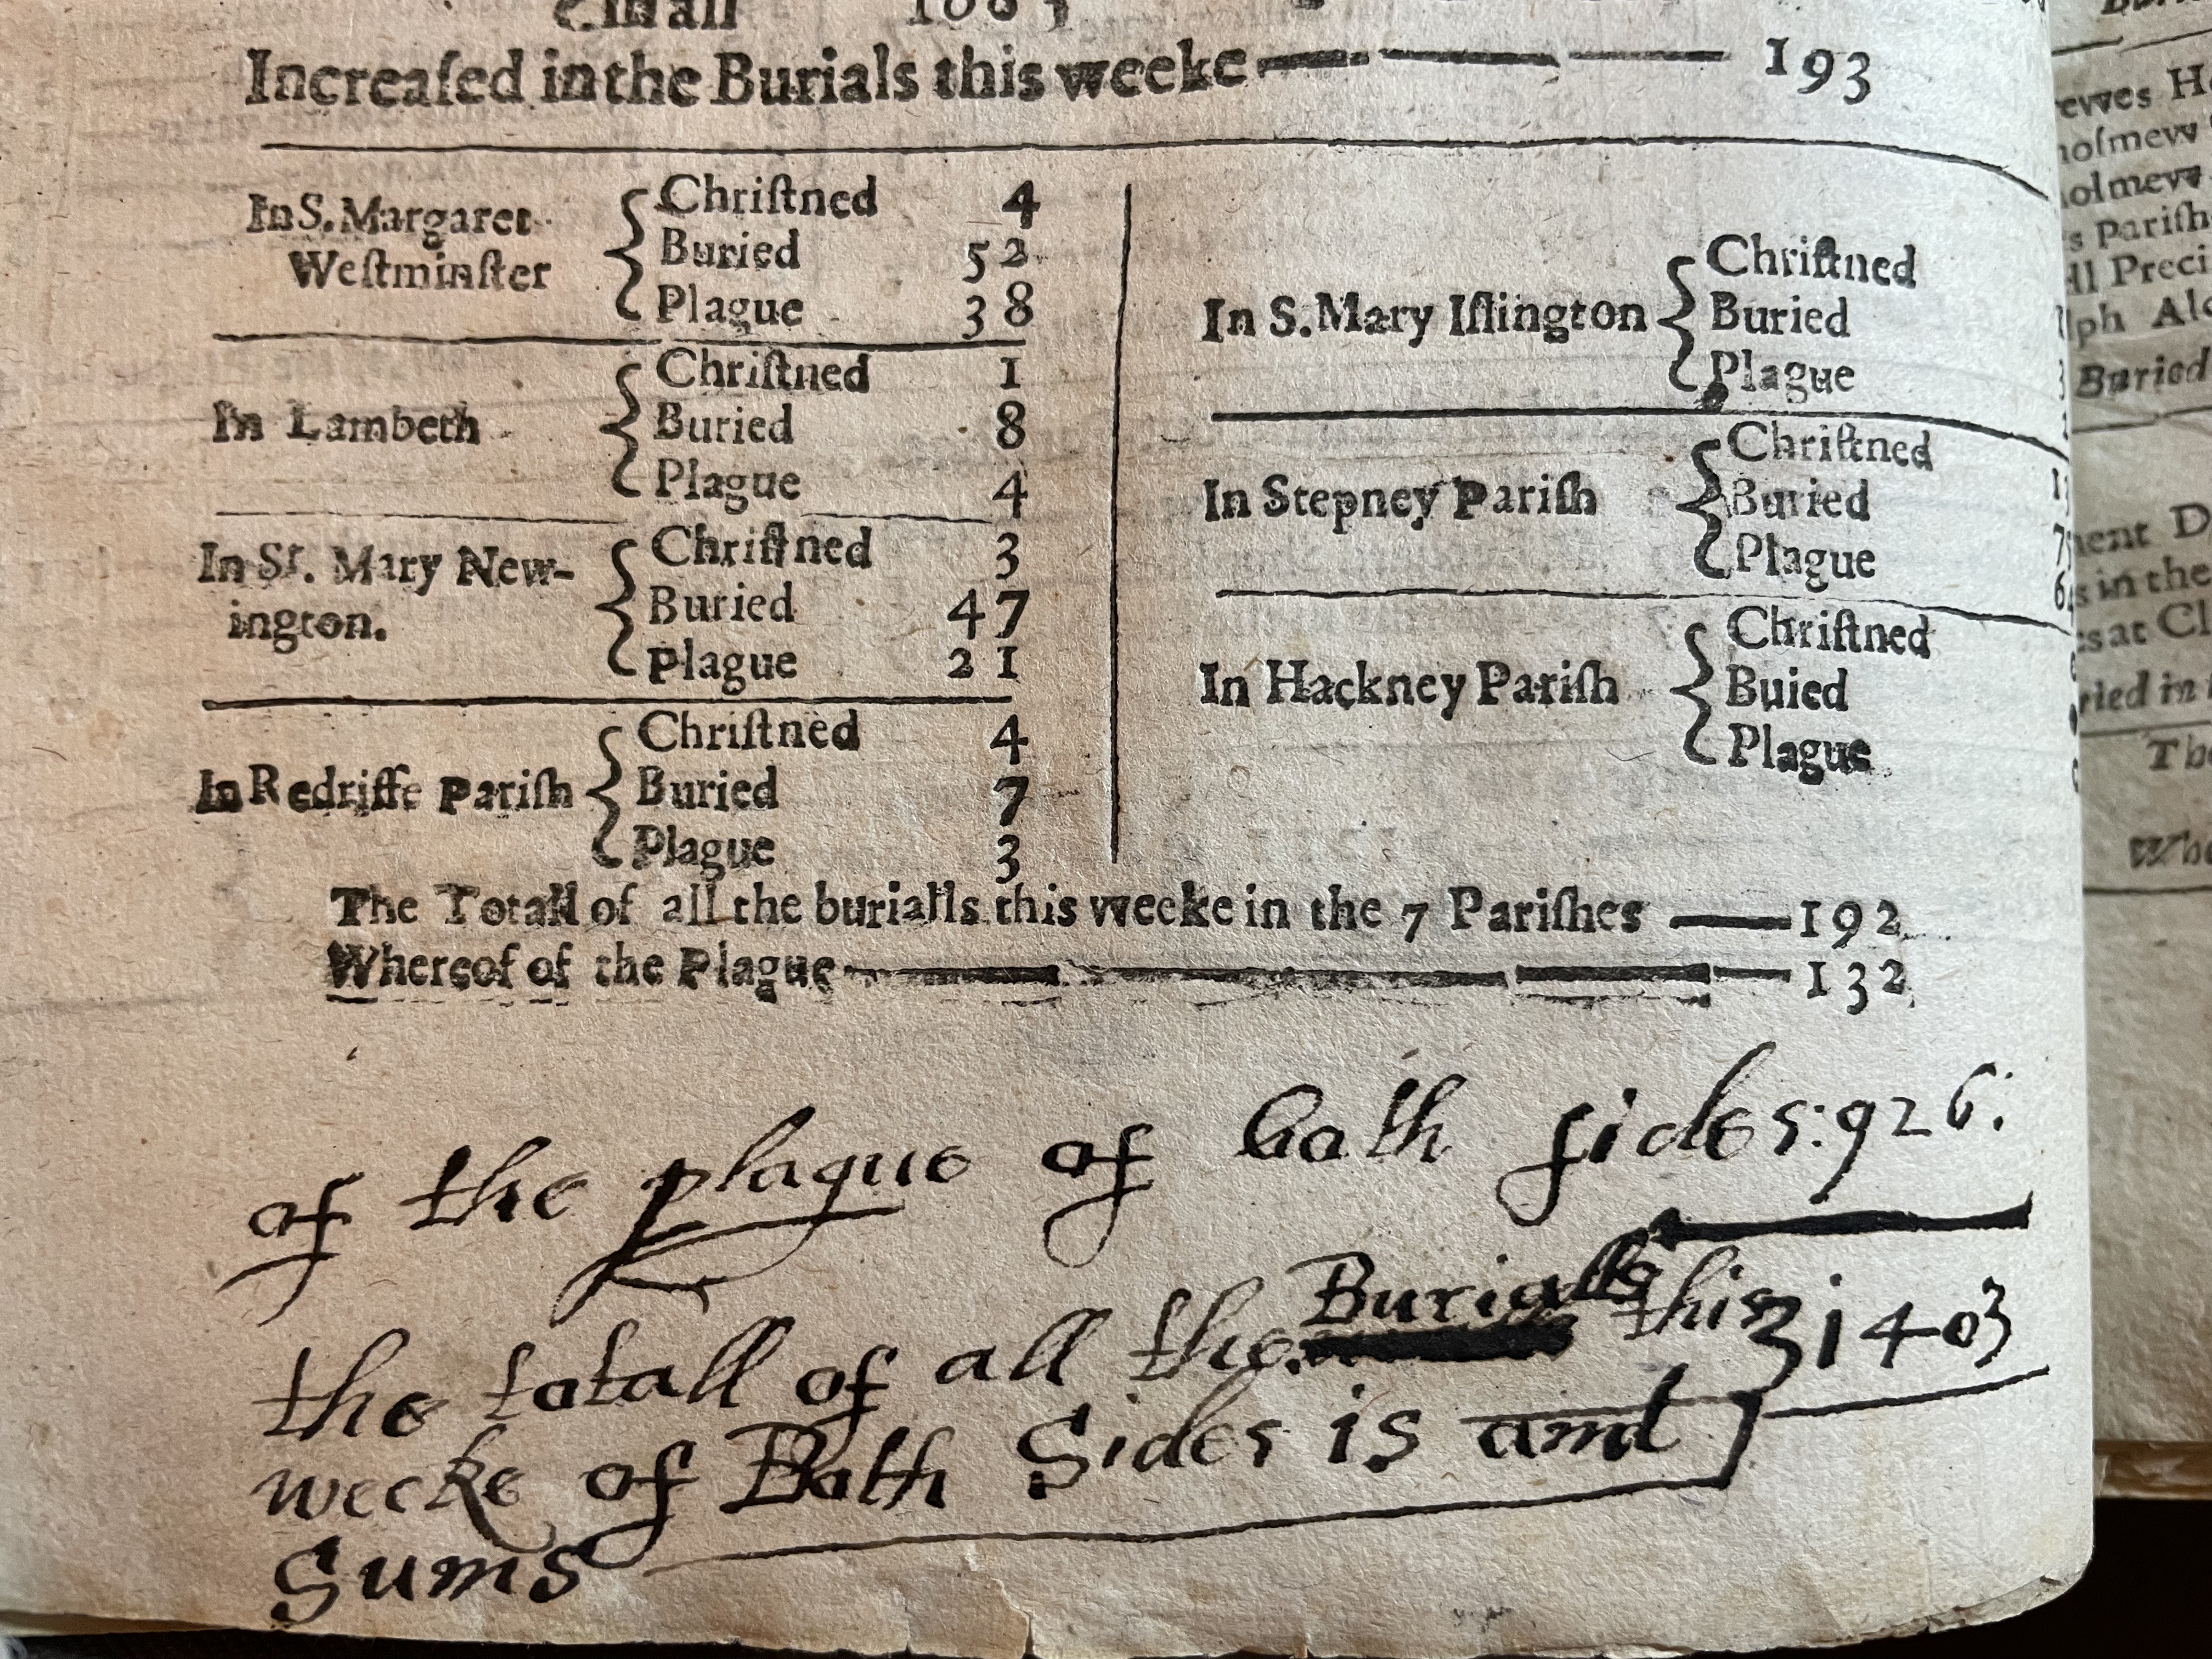 Increaſed in the Burials this weeke 193
In S. Margaret Weſtminſter
Chriſtned 4
Buried 52
Plague 38
In Lambeth
Chriſtned 1
Buried 8
Plague 4
In St. Mary New-
ington.
Chriſtned 3
Buried 47
Plague 21
In Redriffe Pariſh
Chriſtned 4
Buried 7
Plague 3
In S. Mary Iſlington
Chriſtned
Buried
Plague
In Stepney Pariſh
Chriſtned
Buried
Plague
In Hackney Pariſh
Chriſtned
Buied
Plague
The Totall of all the burialls this weeke in the 7 Pariſhes 192
Whereof of the Plague 132
of the plague of both ſides: 926:
the totall of all the Burialls this
weeke of Both Sides is amt 1403
Sums
Buried